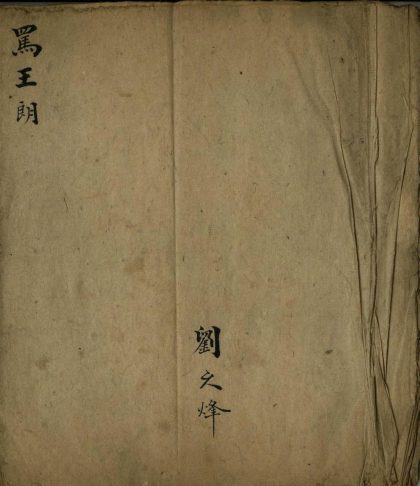 罵王朗
劉文烽